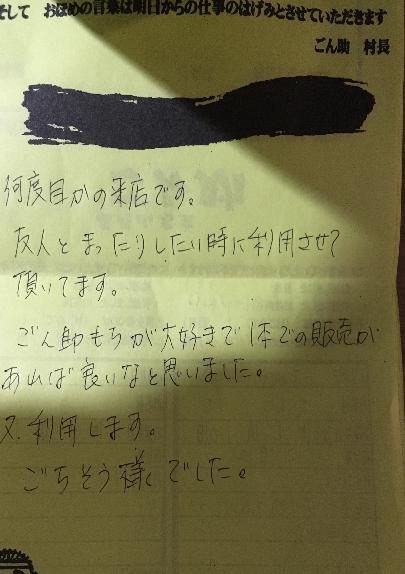 そして おほめの言葉は明日からの仕事のはげみとさせていただきます
ごん助 村長
何度目かの来店です。
友人とまったりしたい時に利用させて
頂いてます。
ごん助もちが大好きで1本での販売が
あれば良いなと思いました。
又、利用します。
ごちそう様でした。